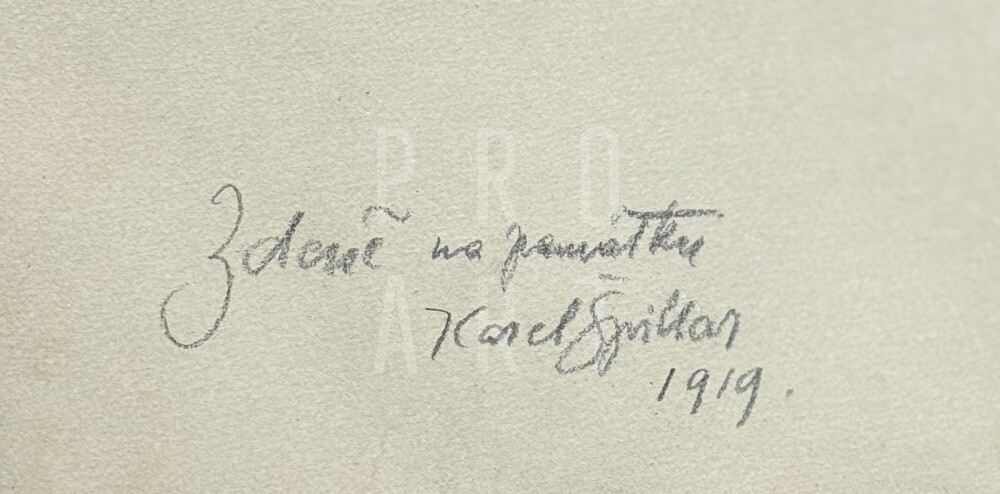 Zdeně na památku
Karel Špillar
1919.
PRO
ART